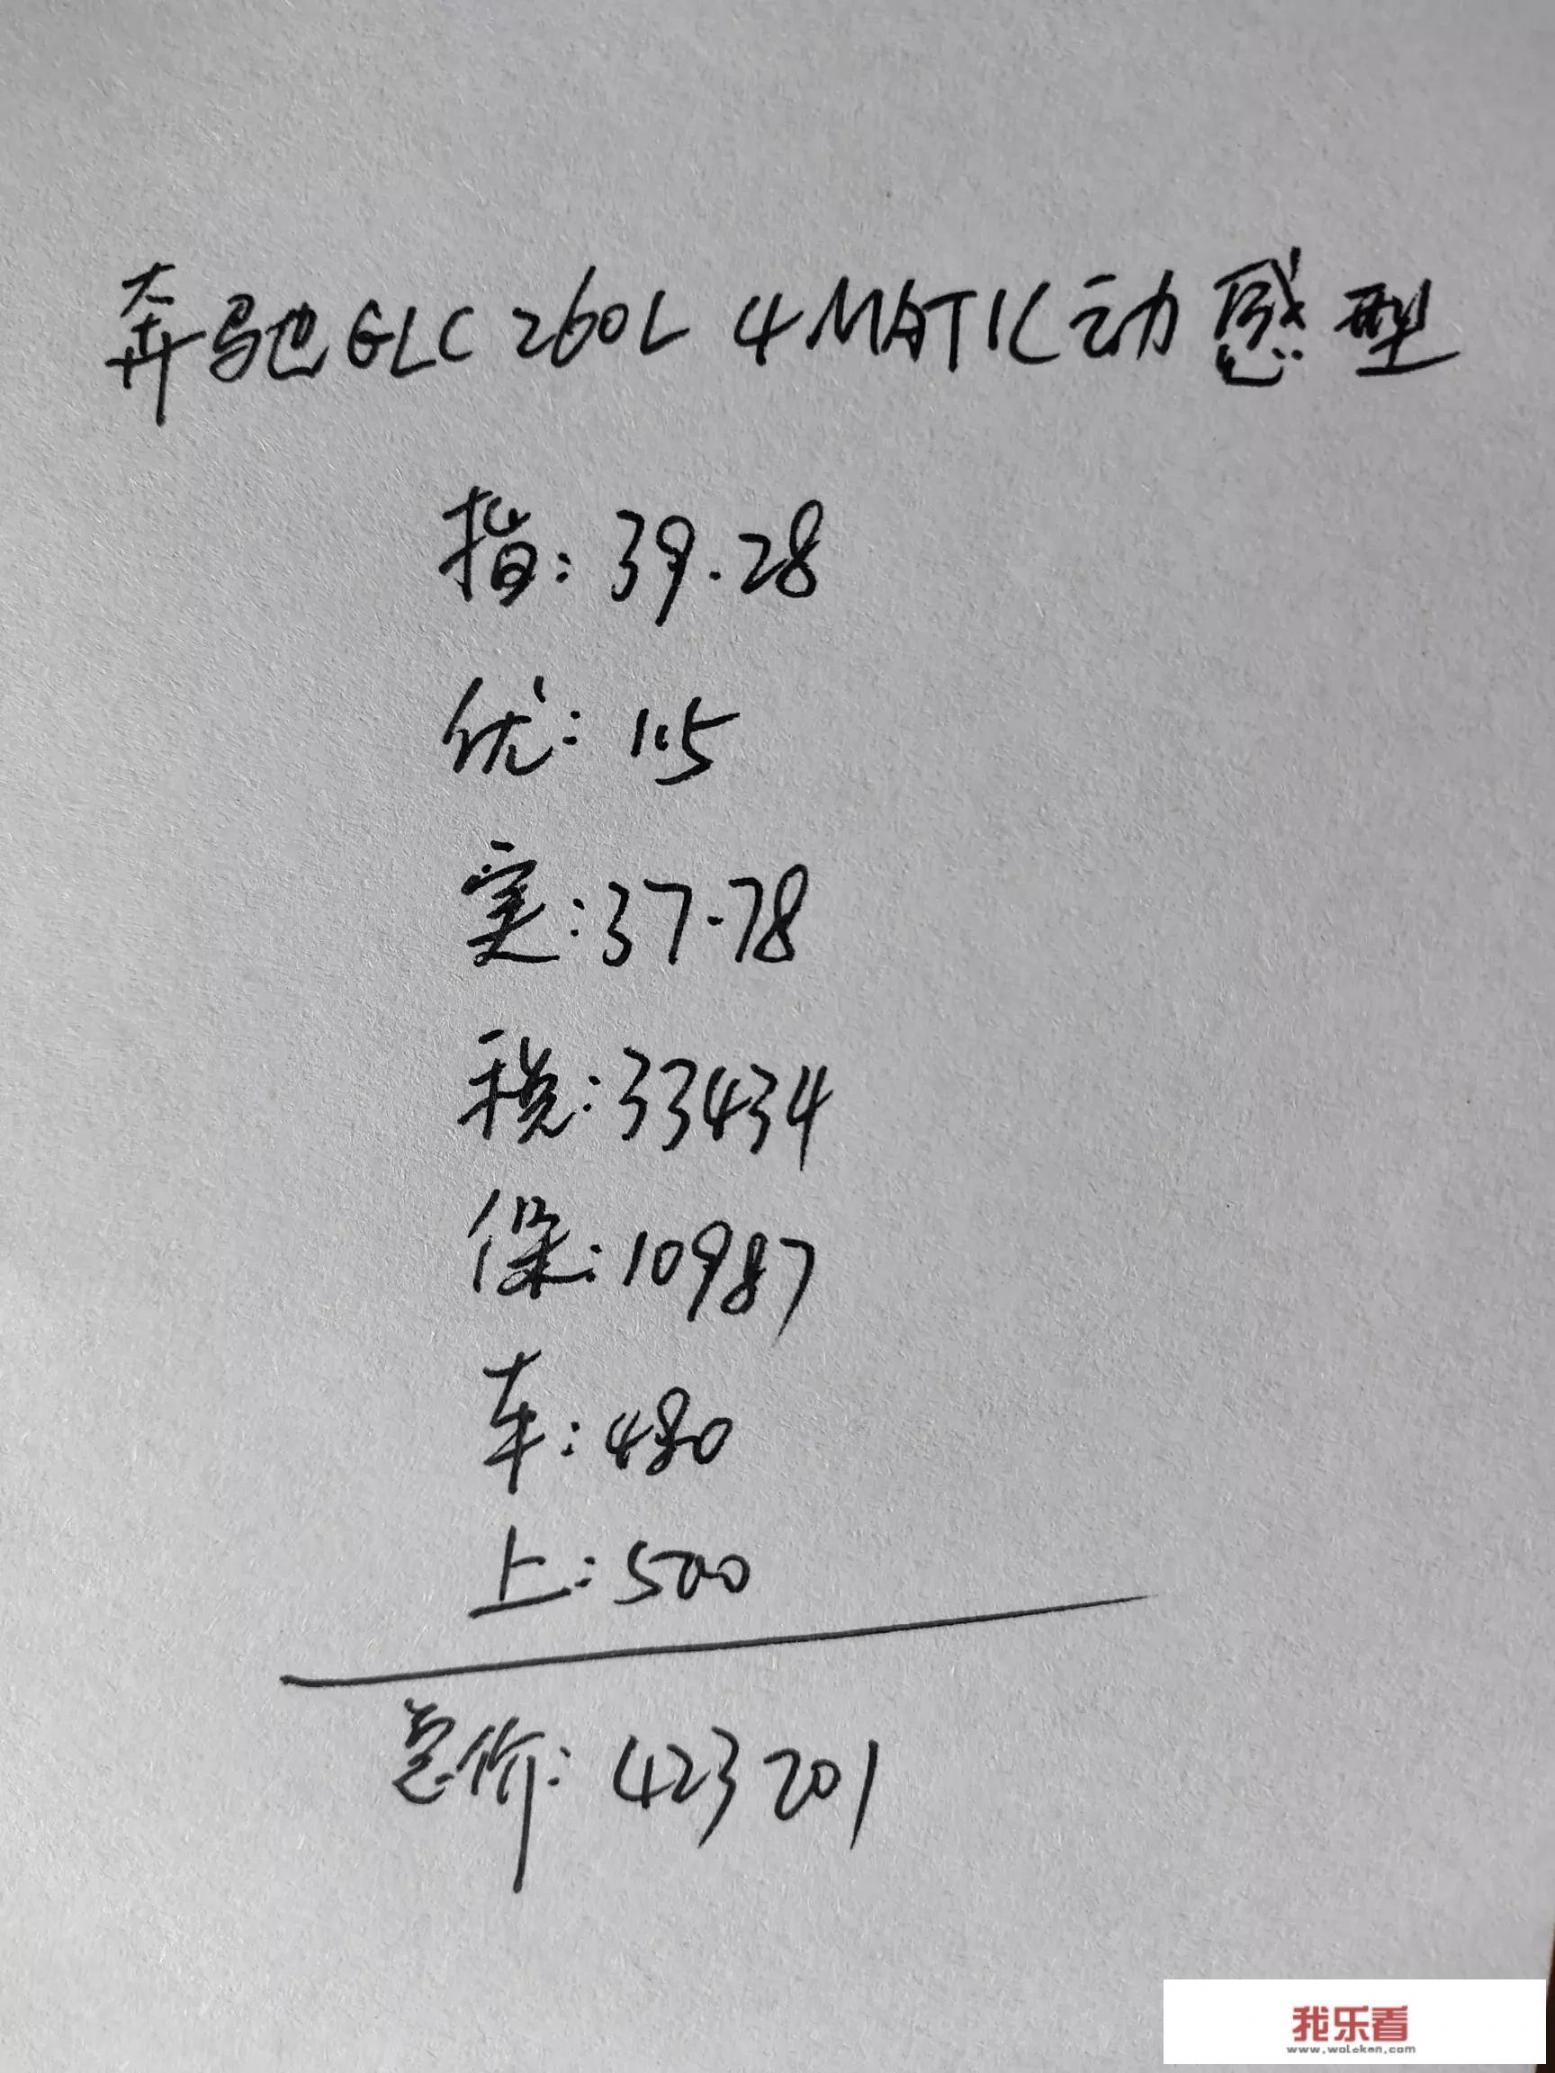 奔驰GLC 260L 4MATIC动感型
指：39.28
优：1.5
实：37.78
税：33434
保：10987
车：480
上：500
总价：423201
我乐看
www.woleken.com